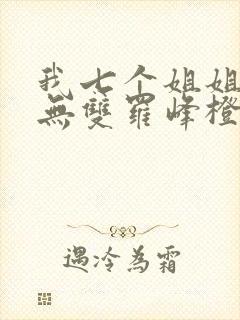 我七个姐姐
無雙羅峰橙
遇冷為霜